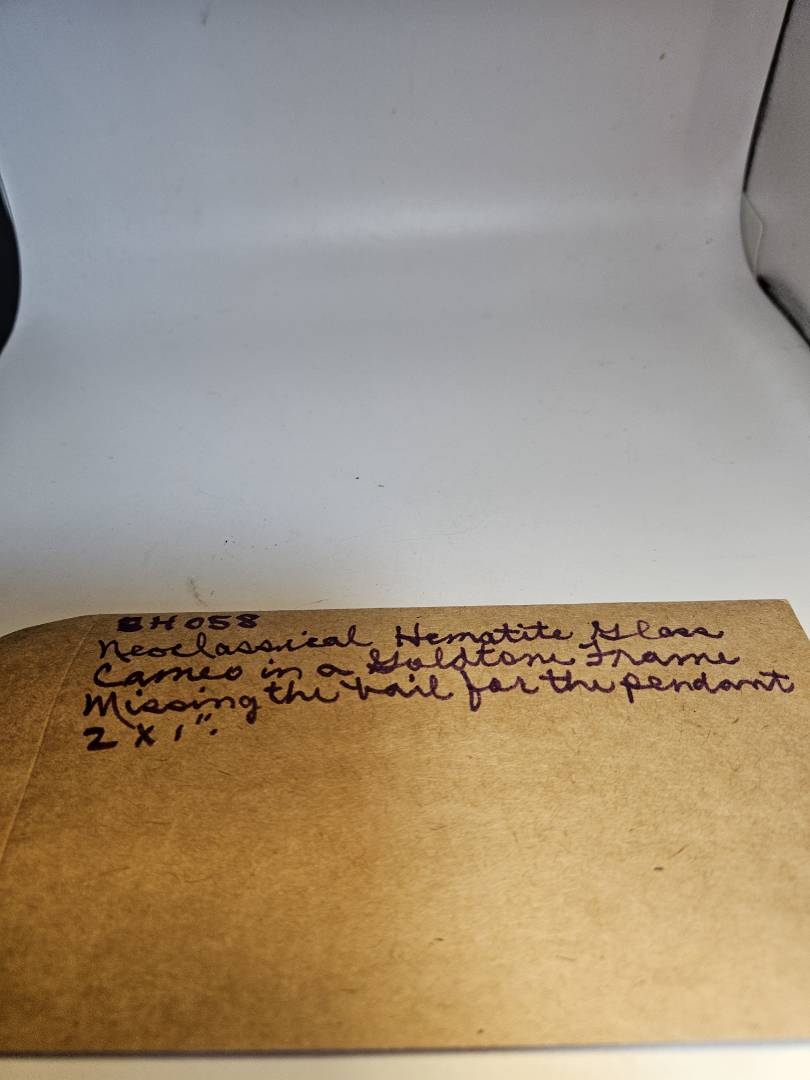 BH058
Neoclassical Hematite Glass
Cameo in a Goldtone Frame
Missing the bail for the pendant
2 X 1".